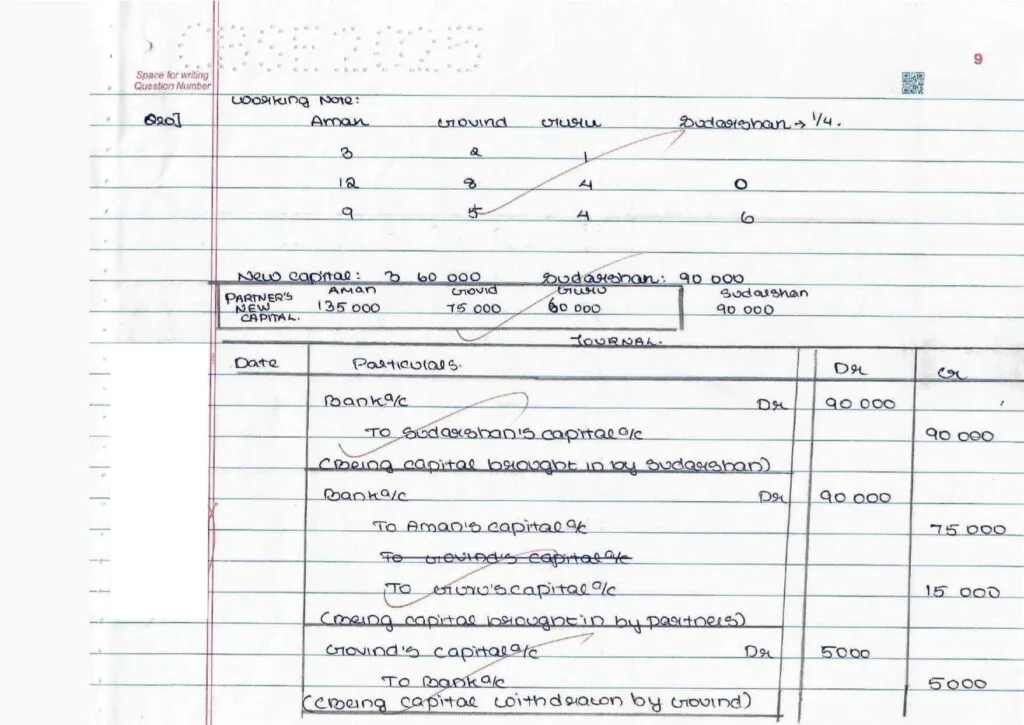 CBSE 2025
9
Space for writing
Question Number
Working Note:
Q20] Aman Govind Guru Sudarshan → 1/4.
3 2 1
12 8 4 0
9 5 4 6
New capital: 3 60 000 Sudarshan: 90 000
PARTNER'S NEW CAPITAL. AMAN GOVID GURU Sudarshan
135 000 75 000 60 000 90 000
JOURNAL.
Date Particulars. Dr Cr
Bank a/c Dr 90 000
To Sudarshan's capital a/c 90 000
(Being capital brought in by Sudarshan)
Bank a/c Dr 90 000
To Aman's capital a/c 75 000
To Govind's capital a/c
To Guru's capital a/c 15 000
(Being capital brought in by partners)
Govind's capital a/c Dr 5000
To Bank a/c 5000
(Being capital withdrawn by Govind)